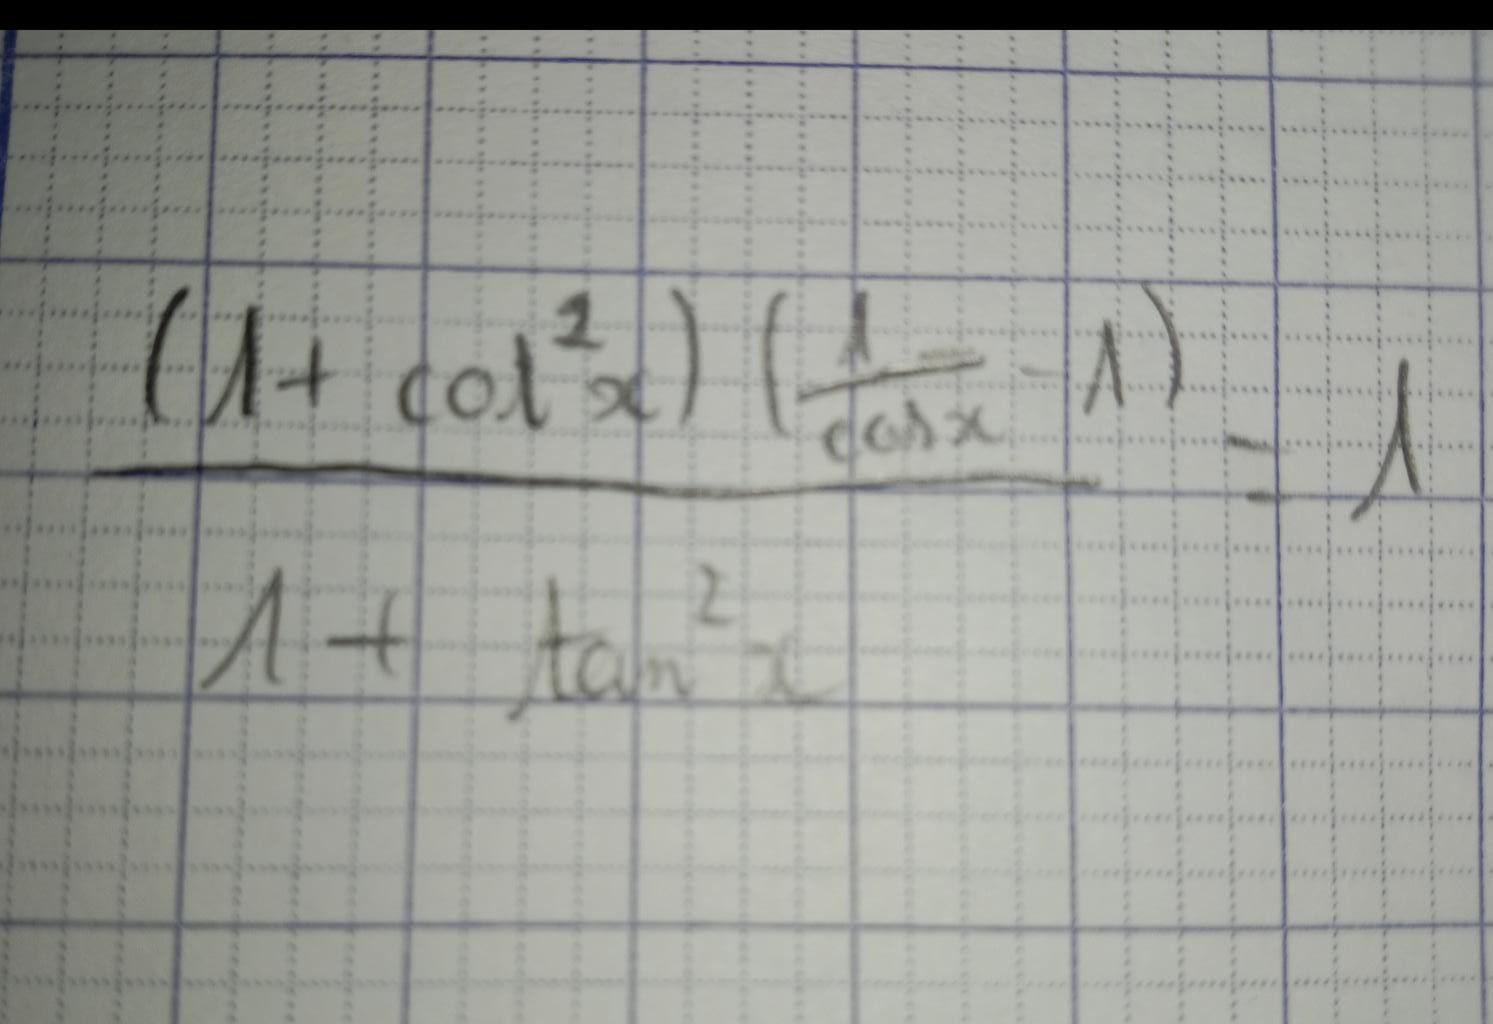 (1 + cot²x) (1/cosx - 1)
= 1
1 + tan²x